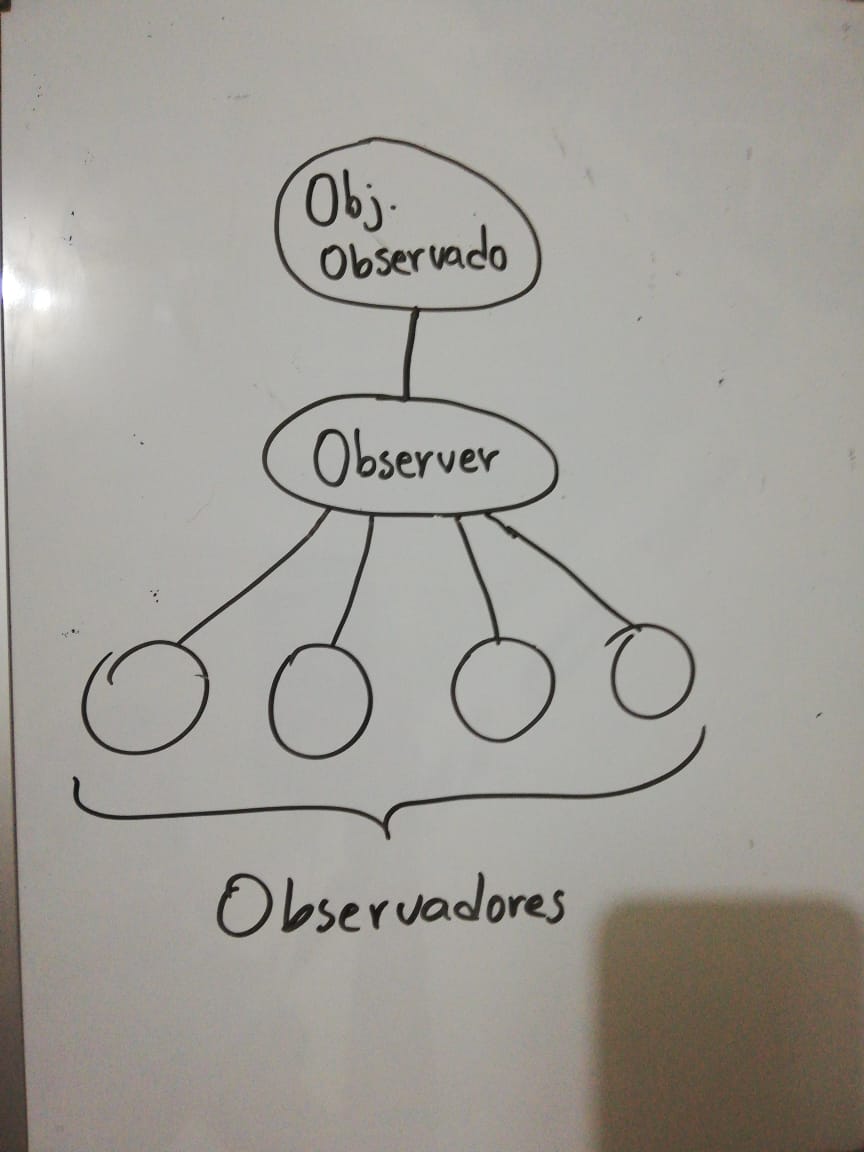 Obj.
Observado
Observer
Observadores